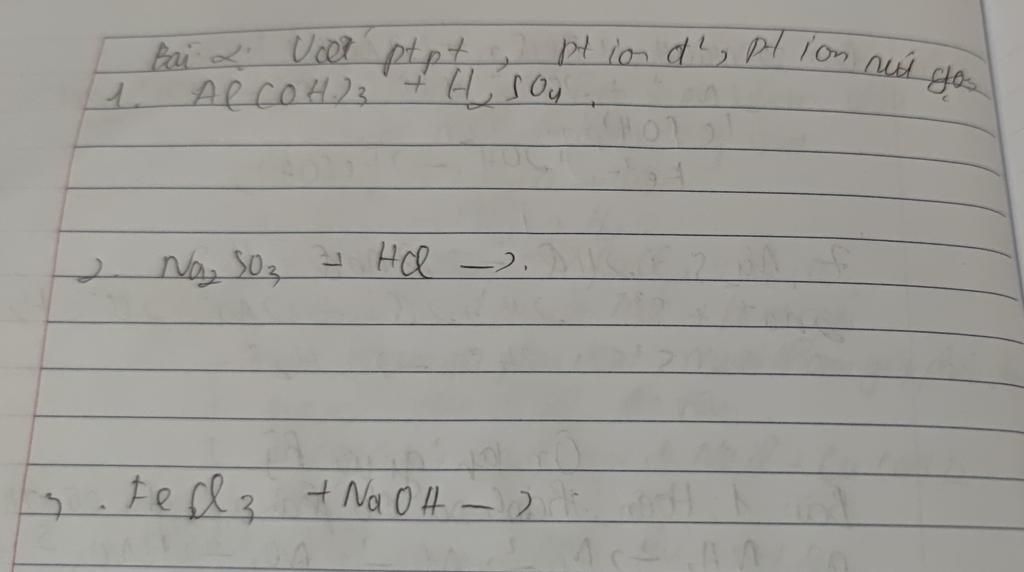 Bài 2: Viết ptpt, pt ion đ², pt ion rút gọn
1. Al(OH)3 + H2SO4.
2. Na2SO3 + HCl →.
3. FeCl3 + NaOH →